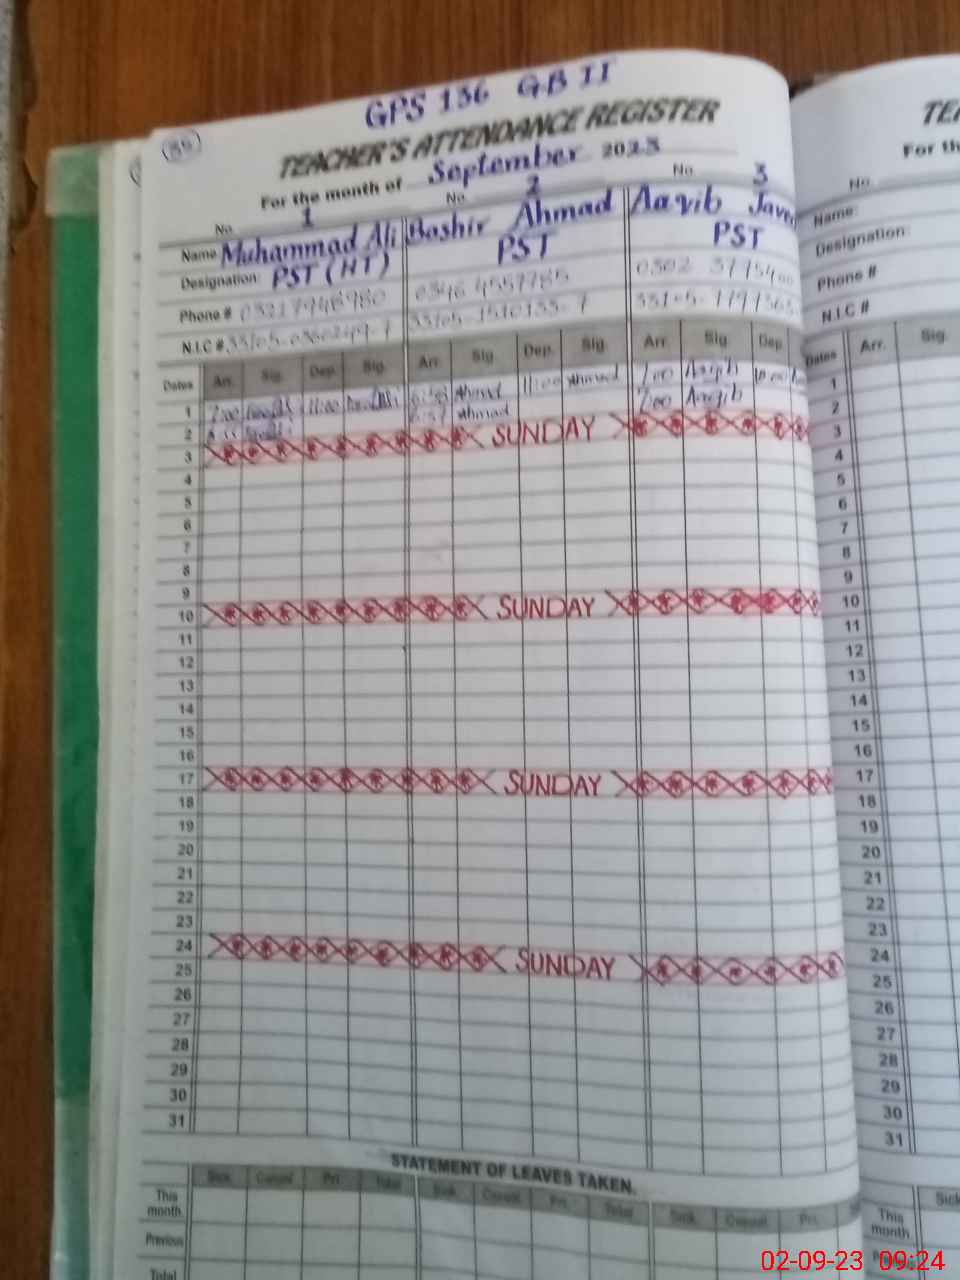 GPS 136 GB II
TEACHER'S ATTENDANCE REGISTER
For the month of September 2023
No. 1 No. 2 No. 3
Name: Muhammad Ali Bashir Ahmad Aaqib
Designation: PST (HT) PST PST
Phone #
N.I.C #
Dates Arr. Sig. Dep. Sig. Arr. Sig. Dep. Sig. Arr. Sig. Dep.
1 7:00 11:00 Ahmad 11:00 Ahmad 7:00 Aaqib
2 Ahmad 7:00 Aaqib
3 SUNDAY
4
5
6
7
8
9
10 SUNDAY
11
12
13
14
15
16
17 SUNDAY
18
19
20
21
22
23
24 SUNDAY
25
26
27
28
29
30
31
STATEMENT OF LEAVES TAKEN.
Sick. Casual Pri. Total Sick. Casual Pri. Total Sick. Casual Pri.
This month.
Previous
Total
For th
No.
Name:
Designation:
Phone #
N.I.C #
Dates Arr. Sig.
1
2
3
4
5
6
7
8
9
10
11
12
13
14
15
16
17
18
19
20
21
22
23
24
25
26
27
28
29
30
31
Sick
This month
02-09-23 09:24